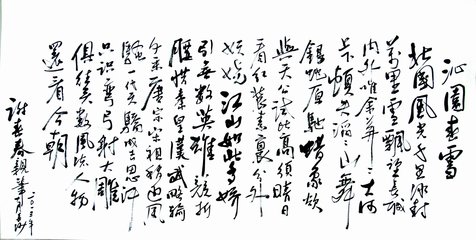 沁園春雪
北國風光千里冰封
萬里雪飄望長城
内外唯余莽〻大河
上下頓失滔〻山舞
銀蛇原馳蜡象欲
與天公試比高須晴日
看紅裝素裹分外
妖嬈江山如此多嬌
引無數英雄競折
腰惜秦皇漢武略輸
文采唐宗宋祖稍遜風
騷一代天驕成吉思汗
只識彎弓射大雕
俱往矣數風流人物
還看今朝